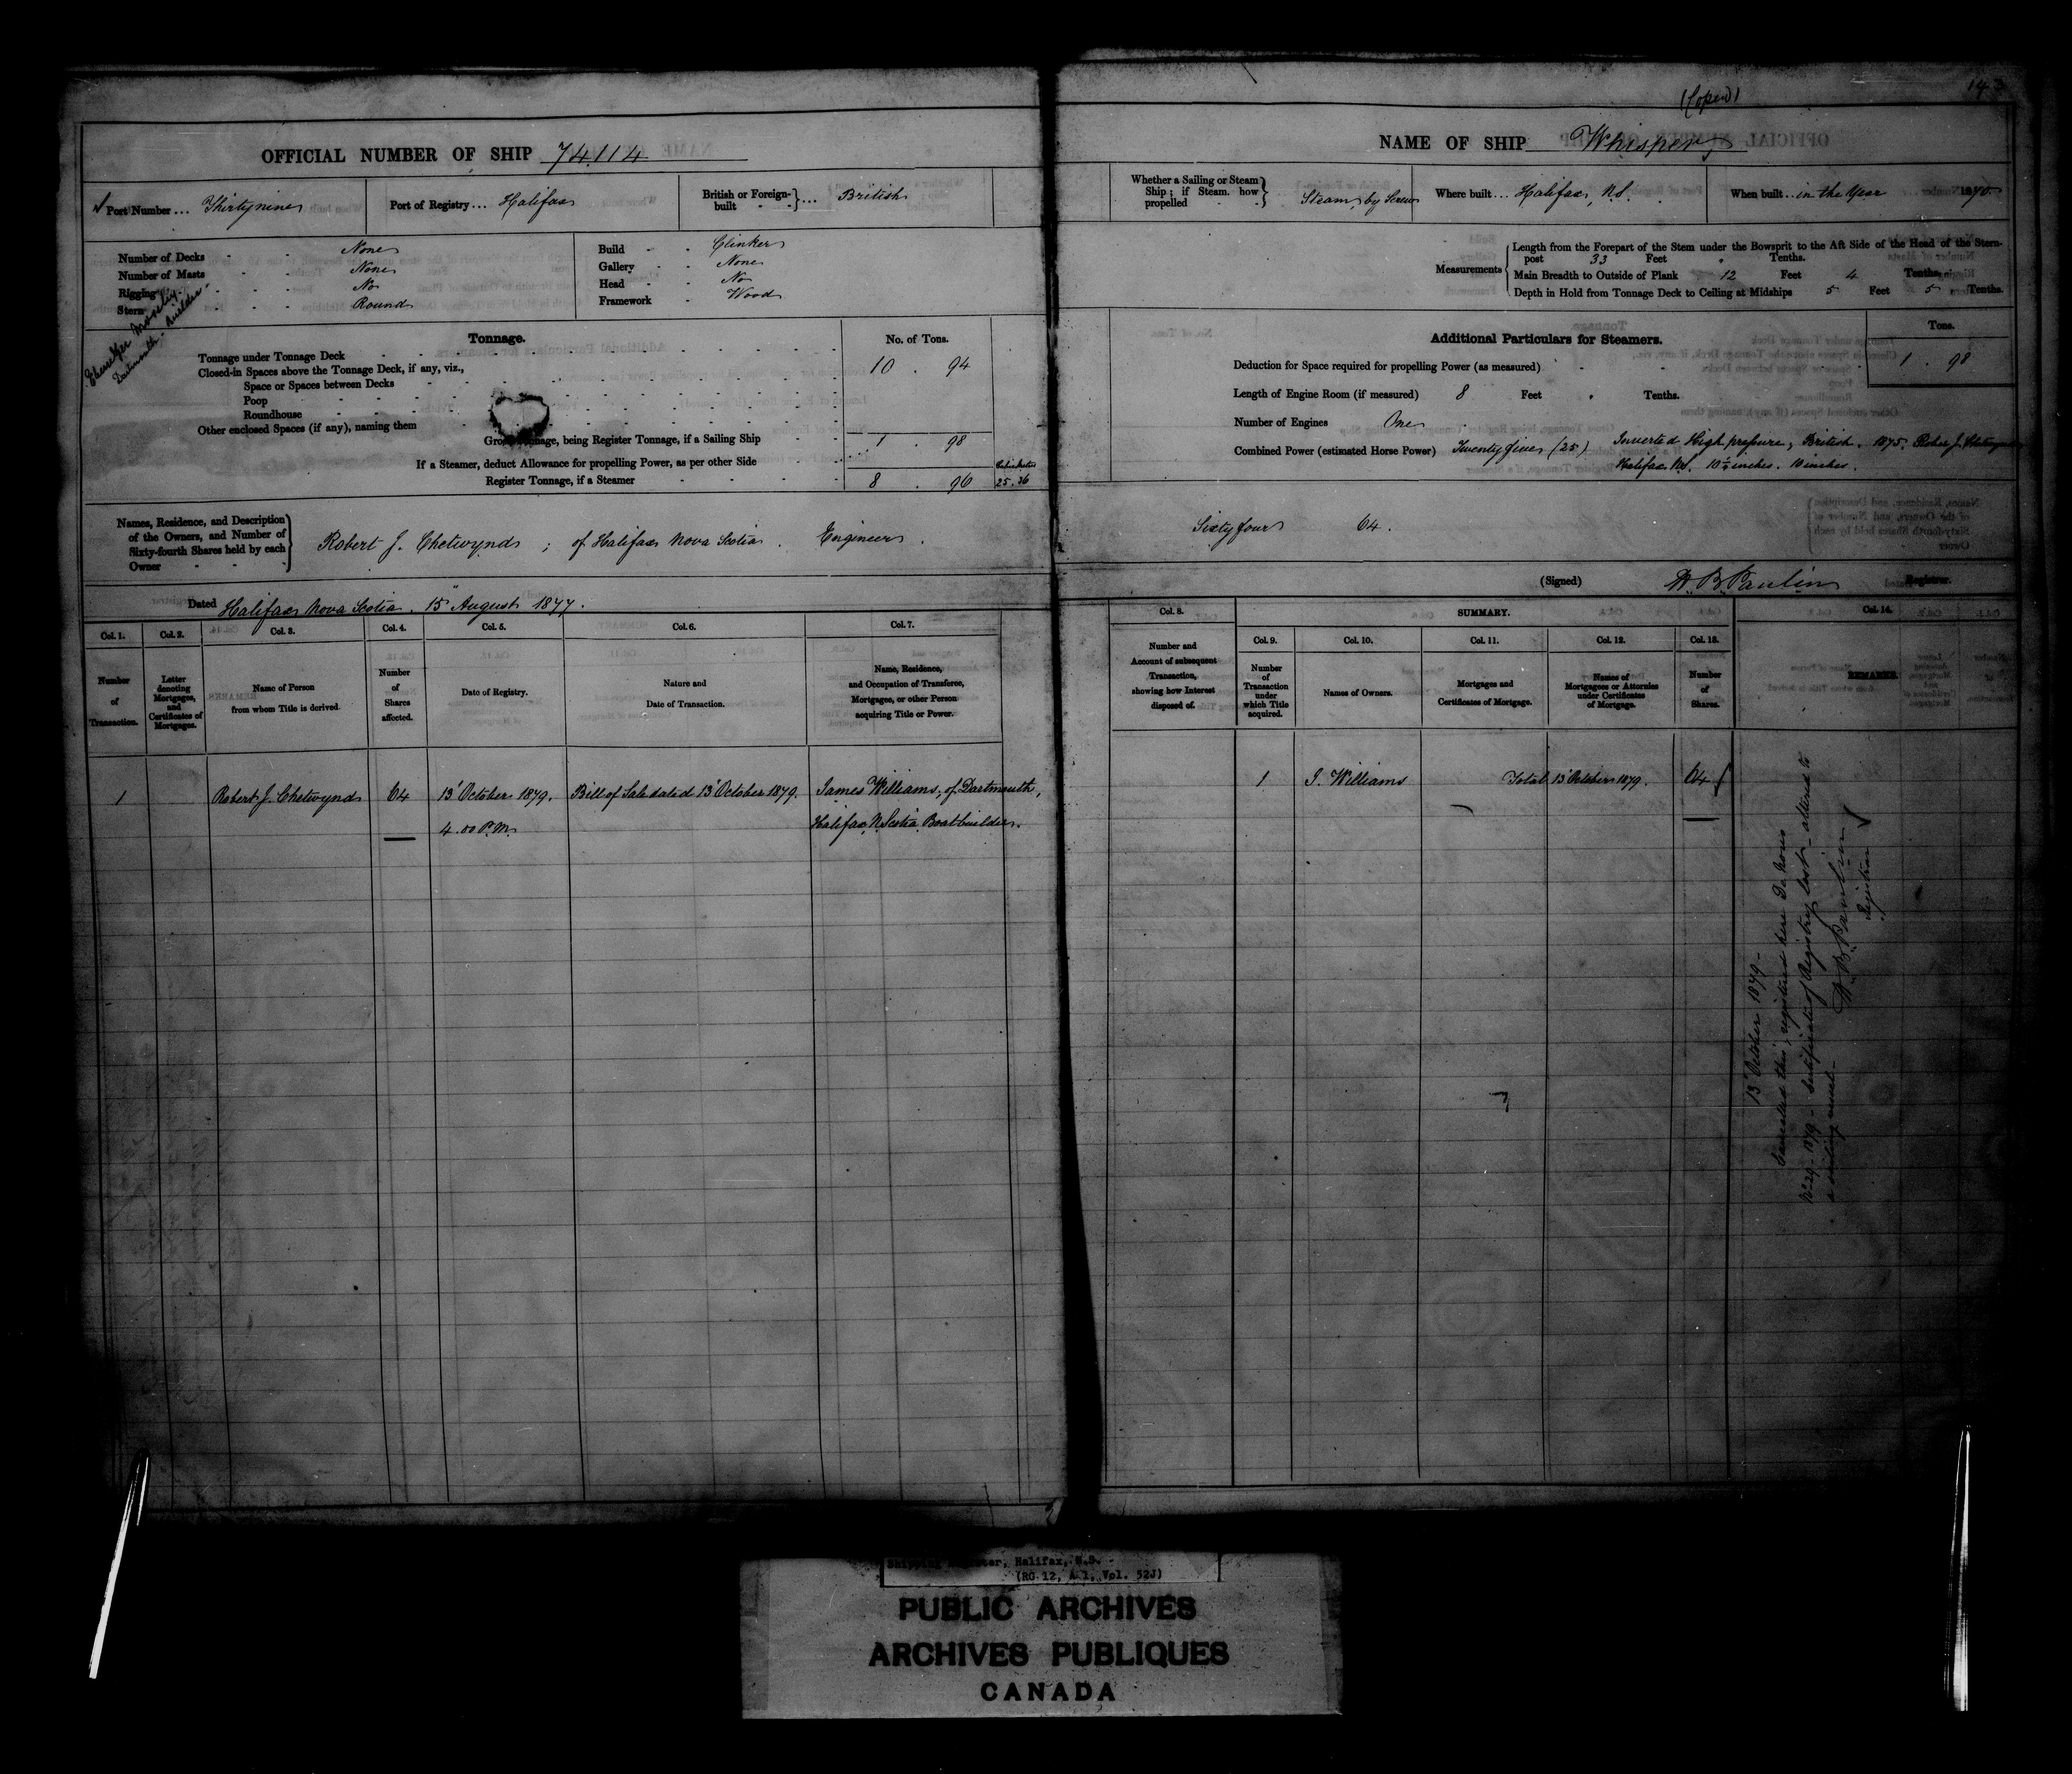 143
(Copied)
OFFICIAL NUMBER OF SHIP 74114
Port Number ... Thirtynine
Port of Registry ... Halifax
British or Foreign-built } ... British
Number of Decks - - None
Number of Masts - - None
Rigging - - No
Stern - - Round
Build - - Clinker
Gallery - - None
Head - - No
Framework - Wood
Ebenezer Mosely
Dartmouth - Builder -
Tonnage.
No. of Tons.
Tonnage under Tonnage Deck
10 . 94
Closed-in Spaces above the Tonnage Deck, if any, viz.,
Space or Spaces between Decks
Poop
Roundhouse
Other enclosed Spaces (if any), naming them
Gross Tonnage, being Register Tonnage, if a Sailing Ship
1 . 98
If a Steamer, deduct Allowance for propelling Power, as per other Side
Register Tonnage, if a Steamer
8 . 96
25.36
Names, Residence, and Description of the Owners, and Number of Sixty-fourth Shares held by each Owner
Robert J. Chetwynd ; of Halifax Nova Scotia . Engineer .
Dated Halifax Nova Scotia . 15" August 1877 .
Col. 1. Col. 2. Col. 3. Col. 4. Col. 5. Col. 6. Col. 7.
Number of Transaction.
Letter denoting Mortgages, and Certificates of Mortgages.
Name of Person from whom Title is derived.
Number of Shares affected.
Date of Registry.
Nature and Date of Transaction.
Name, Residence, and Occupation of Transferee, Mortgagee, or other Person acquiring Title or Power.
1 Robert J. Chetwynd 64 13 October 1879. Bill of Sale dated 13 October 1879. James Williams, of Dartmouth,
4.00 P.M. Halifax, N. Scotia. Boatbuilder.
NAME OF SHIP Whisper
Whether a Sailing or Steam Ship; if Steam, how propelled } Steam, by Screw
Where built ... Halifax, N.S.
When built .. in the Year 1870.
Measurements
Length from the Forepart of the Stem under the Bowsprit to the Aft Side of the Head of the Stern-
post 33 Feet . Tenths.
Main Breadth to Outside of Plank 12 Feet 4 Tenths.
Depth in Hold from Tonnage Deck to Ceiling at Midships 5 Feet 5 Tenths.
Additional Particulars for Steamers.
Tons.
Deduction for Space required for propelling Power (as measured)
1 . 98
Length of Engine Room (if measured) 8 Feet . Tenths.
Number of Engines One
Combined Power (estimated Horse Power) Twentyfive (25) Inverted High pressure, British . 1875. Robert J. Chetwynd
Halifax NS. 10½ inches. 10 inches.
Sixtyfour 64 .
(Signed) W. B. Paulin Registrar.
Col. 8. SUMMARY. Col. 14.
Col. 9. Col. 10. Col. 11. Col. 12. Col. 13.
Number and Account of subsequent Transaction, showing how Interest disposed of.
Number of Transaction under which Title acquired.
Names of Owners.
Mortgages and Certificates of Mortgage.
Names of Mortgagees or Attornies under Certificates of Mortgage.
Number of Shares.
REMARKS.
1 J. Williams Total 13 October 1879. 64
13 October 1879 -
Cancelled this, registered here De Novo
No 29 - 1879 - Certificate of Registry lost - altered to
a sailing vessel -
W. B. Paulin
Registrar
Shipping Register, Halifax, N.S. -
(RG 12, A 1, Vol. 52J)
PUBLIC ARCHIVES
ARCHIVES PUBLIQUES
CANADA